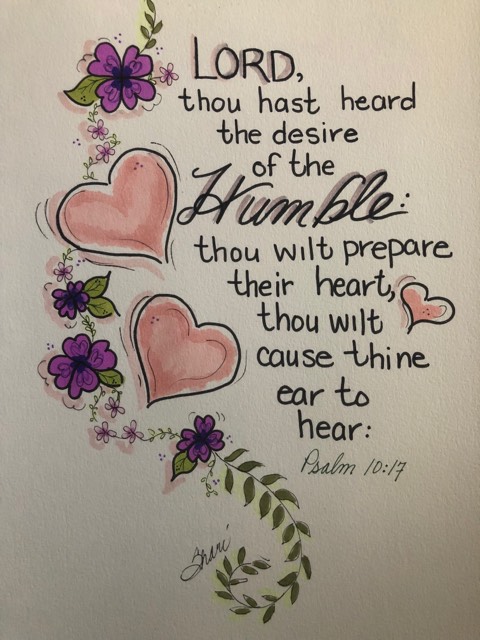 LORD,
thou hast heard
the desire
of the
Humble:
thou wilt prepare
their heart,
thou wilt
cause thine
ear to
hear:
Psalm 10:17
Shari